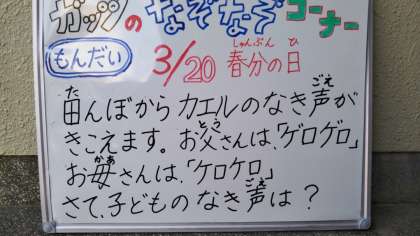 ガッツの なぞなぞ コーナー
もんだい 3/20 春分の日
しゅんぶん ひ
田んぼからカエルのなき声が
た ごえ
きこえます。お父さんは、「ゲロゲロ」
とう
お母さんは、「ケロケロ」
かあ
さて、子どものなき声は？
こ ごえ